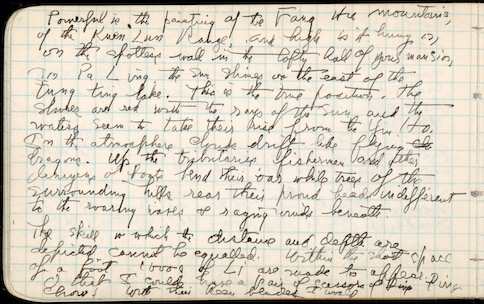 Powerful is the painting of the Fang Hu mountains,
of the Kuen Lun Range, and high is it hung on,
on the spotless wall in the lofty hall of your mansion,
In Pa Ling the sun shines on the east of the
Tung ting lake. This is the true position. The
shores are red with the rays of the sun and the
waters seem to take their rise from the Yin Ho.
In the atmosphere clouds drift like flying
dragons. Up the tributaries fishermen and other
of boats bend their oar while trees of the
surrounding hills rear their proud heads indifferent
to the roaring waves & raging winds beneath
The skill in which the distance and depths are
depicted cannot be equalled. Within the short space
of a foot 1000s of LI are made to appear.
O that I could have a pair of scissors of Bing
Chow! With this keen bladed